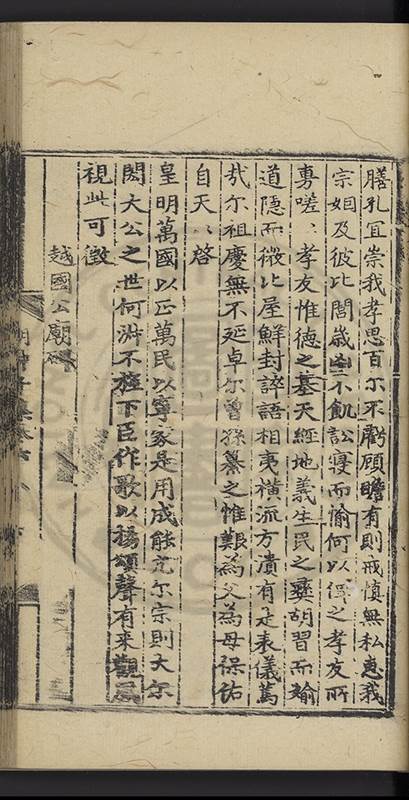 膳孔宜崇我孝思百尔不虧顧瞻有則戒慎無私惠我
宗姻及彼比閭歲凶不飢訟寢而愉何以俾之孝友所
專嗟〻孝友惟德之基天經地義生民之彝胡習而媮
道隠而微比屋鮮封誶語相夷横流方潰有走表儀蔿
㢤尔祖慶無不延卓尔曾孫纂之惟艱為父為母保佑
自天以啓
皇明萬國以正萬民以寧家是用成能充尔宗則大尔
閎大公之世何泲不旌下臣作歌以揚頌聲有来觀民
視此可徵
越國公廟碑